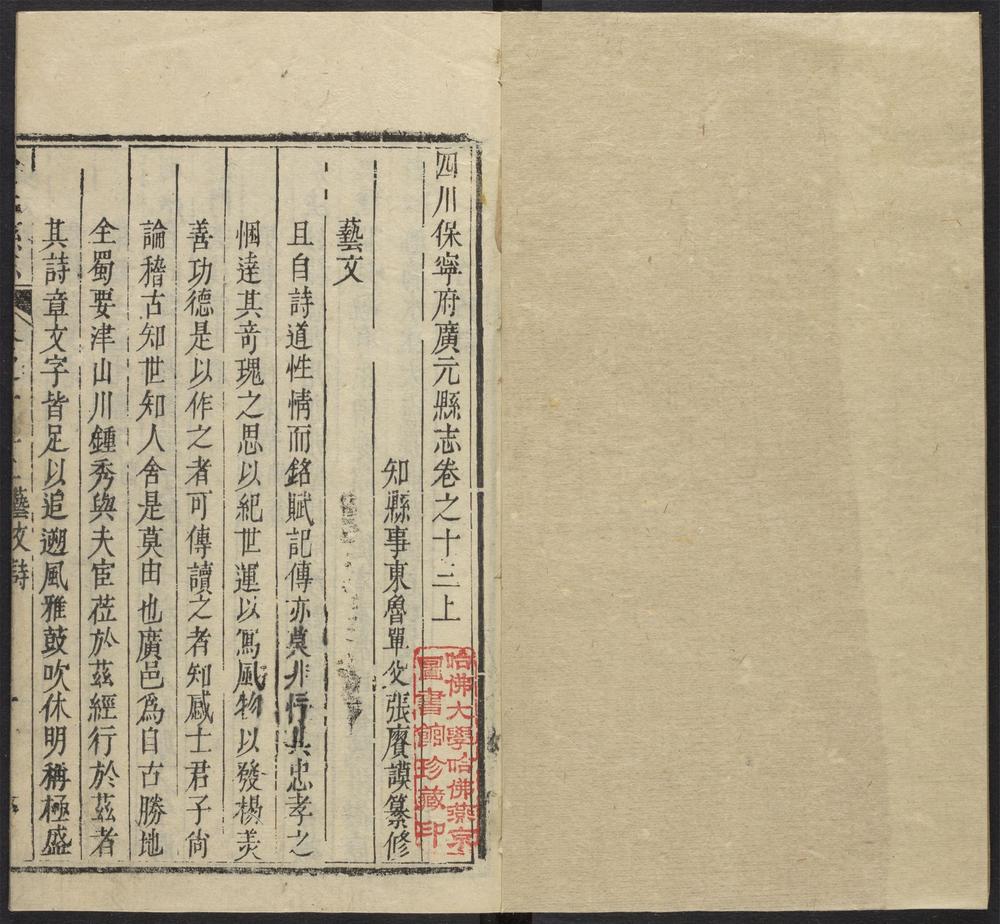 四川保寧府廣元縣志卷之十三上
知縣事東魯單父張賡謨纂修
藝文
且自詩道性情而銘賦記傳亦莫非行其忠孝之
悃達其奇瑰之思以紀世運以寫風物以發楊美
善功德是以作之者可傳讀之者知感士君子尙
論稽古知世知人舍是莫由也廣邑爲自古勝地
全蜀要津山川鍾秀與夫宦蒞於茲經行於茲者
其詩章文字皆足以追遡風雅鼓吹休明稱極盛
藝文詩
哈佛大學哈佛燕京
圖書館珍藏印